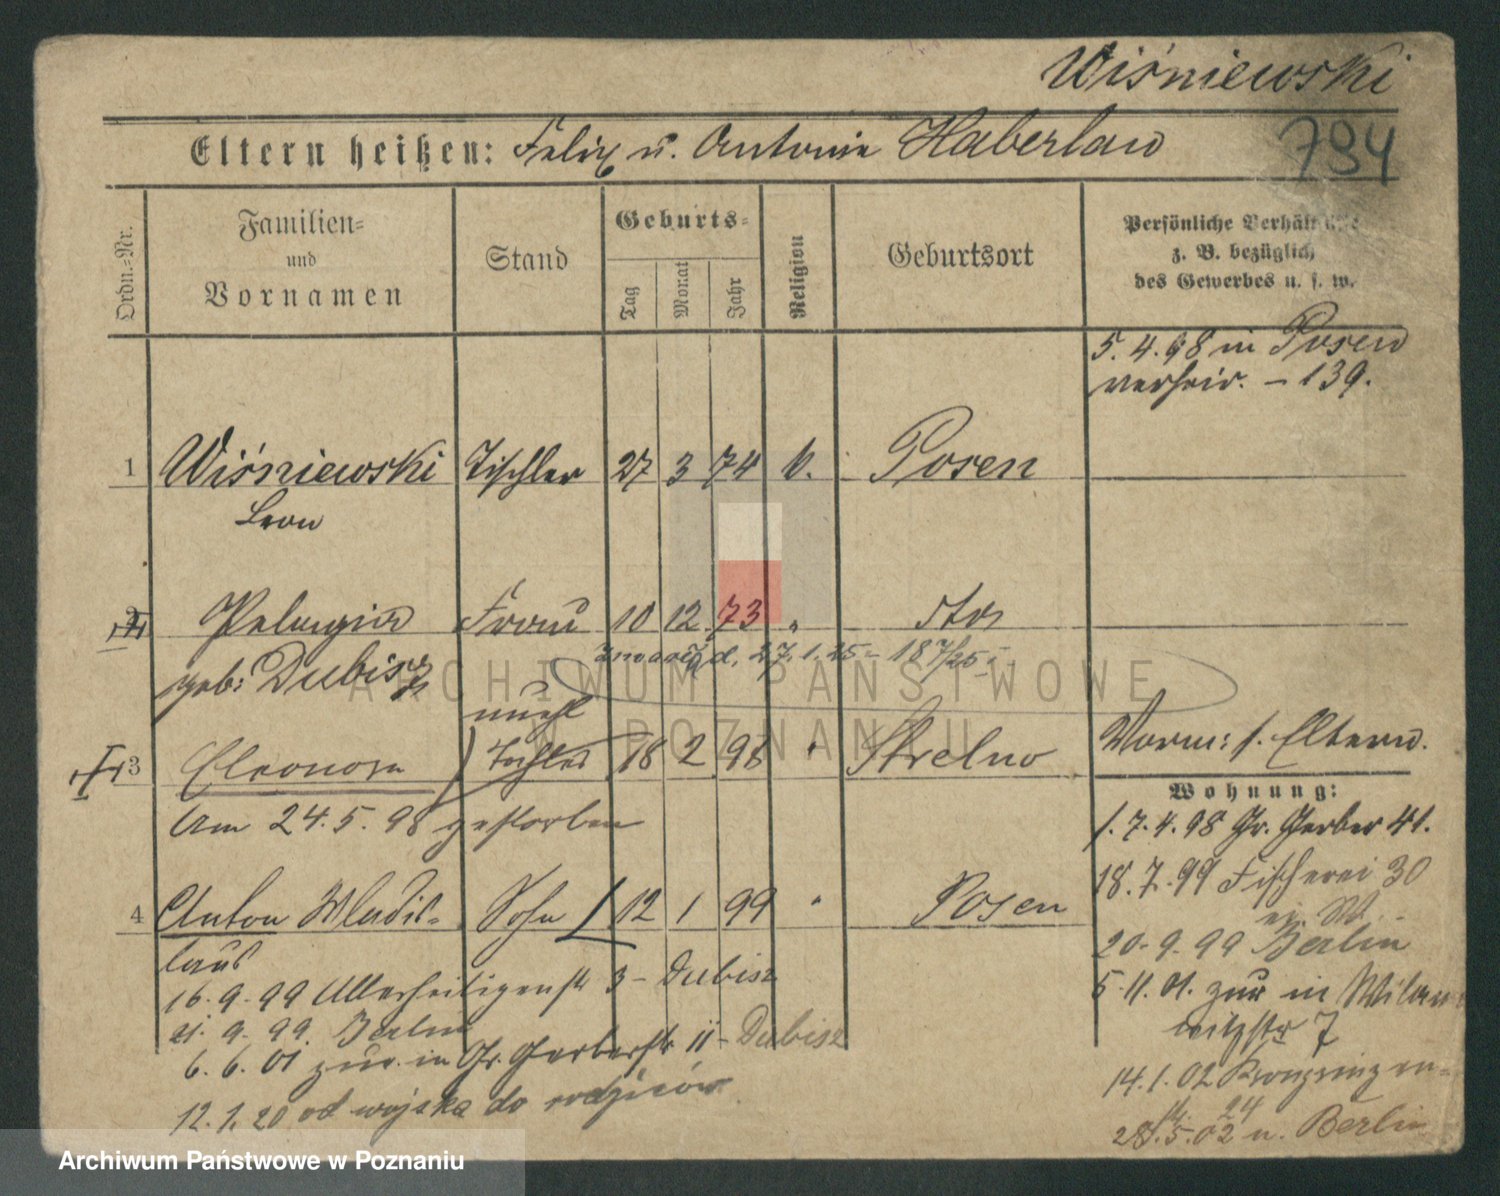 Wiśniewski
794
Eltern heißen: Felix u. Antonie Haberlau
Ordn.-Nr.
Familien-
und
Vornamen
Stand
Geburts-
Tag
Monat
Jahr
Religion
Geburtsort
Persönliche Verhältnisse
z. B. bezüglich
des Gewerbes u. s. w.
5. 4. 98 in Posen
verheir. - 139.
1 Wiśniewski Tischler 27 3 74 k. Posen
Leon
2 Pelagia Frau 10 12 73 " dto
geb: Dubisz
27. 1. 25
unehl
3 Eleonora Tochter 18 2 98 " Strelno
Am 24. 5. 98 gestorben
4 Anton Wladis- Sohn 12 1 99 " Posen
laus
16. 9. 99 Allerheiligenstr 3 - Dubisz
21. 9. 99. Berlin
6. 6. 01 zur. in Gr. Gerberstr 11 - Dubisz
12. 1. 20 od wojska do rodziców
Vorm: s. Eltern.
Wohnung:
1. 7. 4. 98 Gr. Gerber 41.
18. 7. 99 Fischerei 30
20. 9. 99 Berlin
5. 11. 01. zur in Wilamo
witzstr 7
14. 1. 02 Kronprinzen-
str. 24
28. 5. 02 n. Berlin
ARCHIWUM PAŃSTWOWE
W POZNANIU
Archiwum Państwowe w Poznaniu